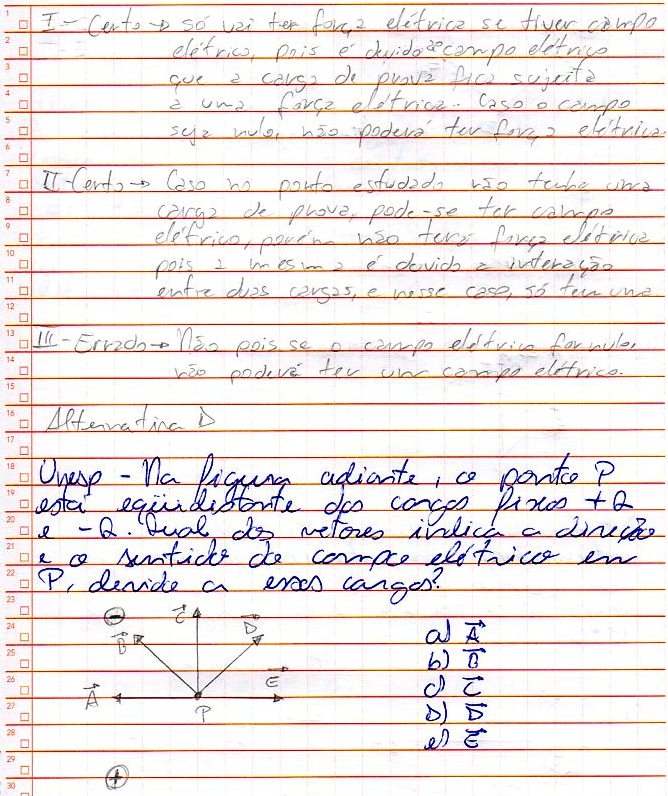 I - Certo → só vai ter força elétrica se tiver campo
elétrico, pois é devido ao campo elétrico
que a carga de prova fica sujeita
a uma força elétrica. Caso o campo
seja nulo, não poderá ter força elétrica.
II - Certo → Caso no ponto estudado não tenha uma
carga de prova, pode-se ter campo
elétrico, porém não terá força elétrica
pois a mesma é devido a interação
entre duas cargas, e nesse caso, só tem uma.
III - Errado → Não pois se o campo elétrico for nulo,
não poderá ter um campo elétrico.
Alternativa D
Unesp - Na figura adiante, o ponto P
está eqüidistante das cargas fixas +Q
e -Q. Qual dos vetores indica a direção
e o sentido do campo elétrico em
P, devido a essas cargas?
⊖ C⃗ D⃗
B⃗
A⃗ P E⃗
⊕
a) A⃗
b) B⃗
c) C⃗
D) D⃗
e) E⃗
1
2
3
4
5
6
7
8
9
10
11
12
13
14
15
16
17
18
19
20
21
22
23
24
25
26
27
28
29
30